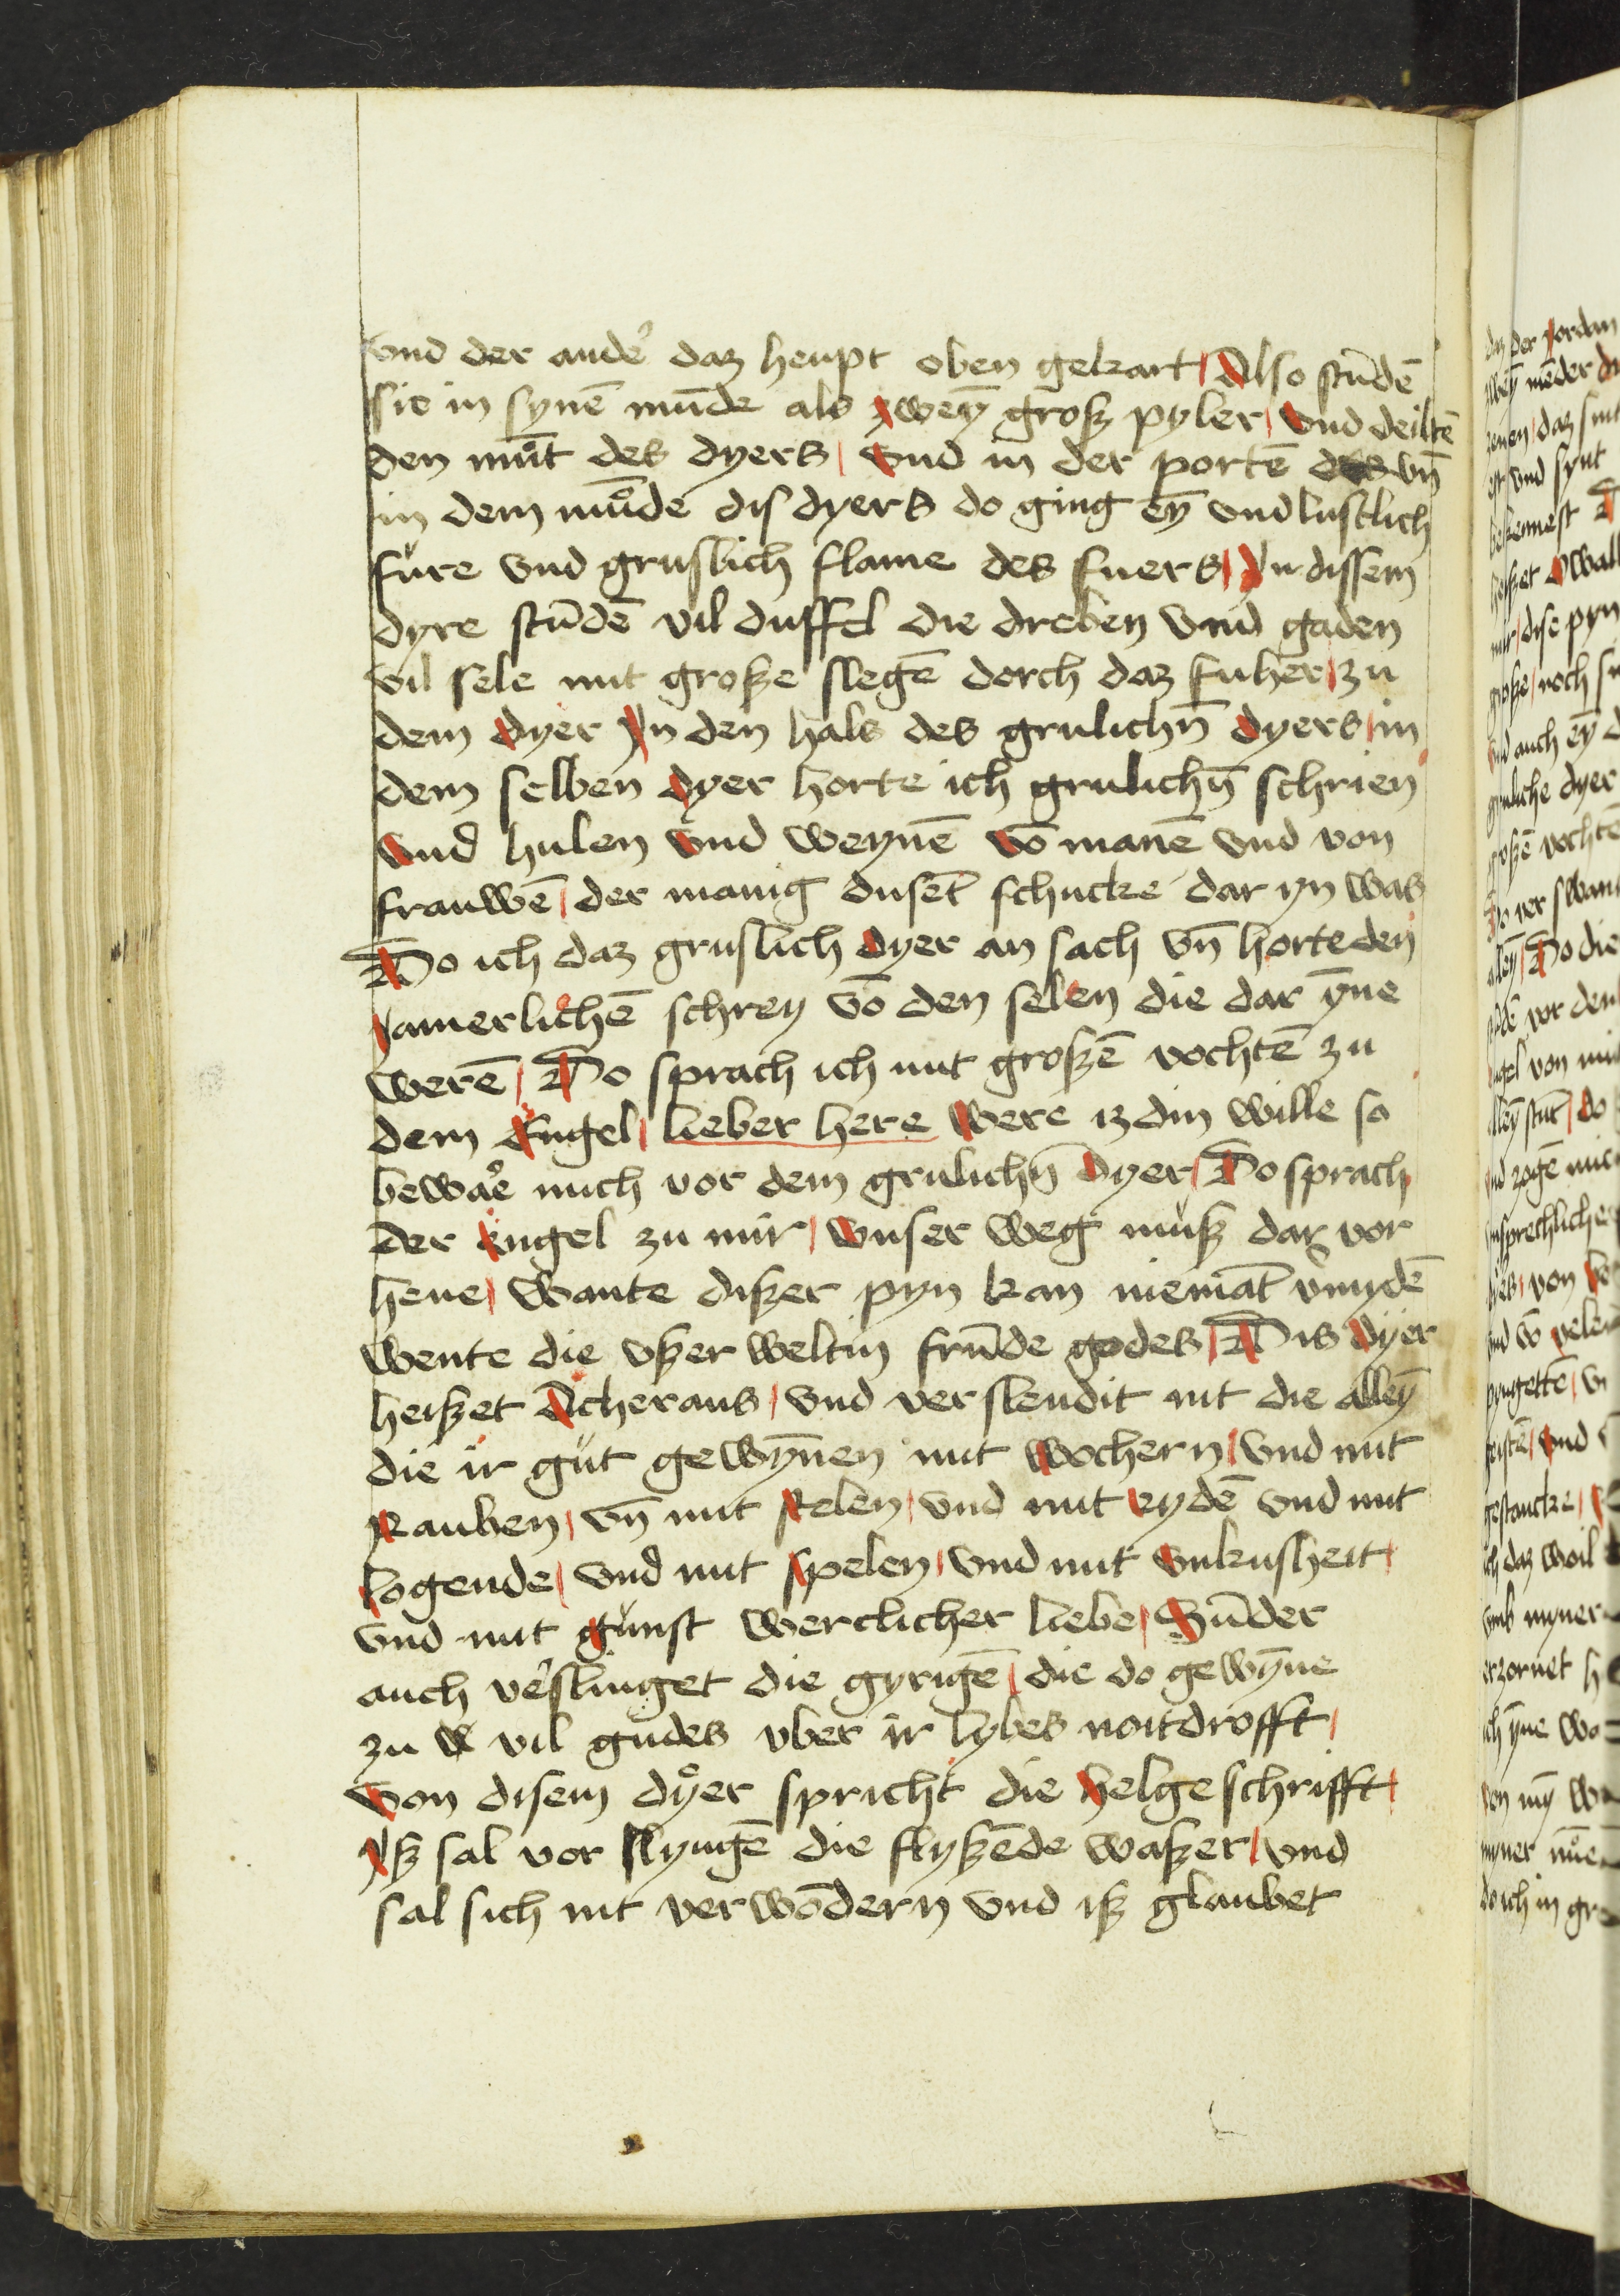 vnd der andeͬ daz heupt oben gekart Also stūdē
sie in synē mūde als zweȳ grosz pyler vnd deiltē
den mūt des dyers vnd in der portē des vn̄
in dem mūde dis dyers do ging eȳ vndlustlich
fure vnd gruslich flame des fuers Jn dissem
dyre stūdē vil duffel die dreben vnd gaden
vil sele mit grosze slegē dorch daz fuher zu
dem dyer Jn den hals des grulichn̄ dyers in
dem selben dyer horte ich grulichn̄ schrien
vnd hulen vnd weynē vō manē vnd von
frauwē der manig dusēt schucke dar yn was
Do ich daz gruslich dyer an sach vn̄ horte den
Jamerlichē schrey vō den selen die dar ȳne
werē Do sprach ich mit groszē vochtē zu
dem Engel lieber here were iz din wille so
bewaͤre mich vor dem grulichn̄ dyer Do sprach
der engel zu mir vnser weg musz dar vor
hene wante diszer pyn kan niemāt v̄mydē
wente die vszer weltin frūde godes Dis dyer
heiszet Acheraus vnd verslendit nit die alleȳ
die ir gut gewȳnen mit wochern vnd mit
Rauben vn̄ mit stelen vnd mit eydē vnd mit
logende vnd mit spelen vnd mit vnkusheit
vnd mit gunst werclicher liebe Sūder
auch veͬslinget die gyrigē die do gewȳne
zu vil gudes vber ir lybes noitdrofft
von disem dyer spricht die helge schrifft
Jsz sal vor slyngē die flyszēde waszer vnd
sal sich nit verwōdern vnd isz glaubet